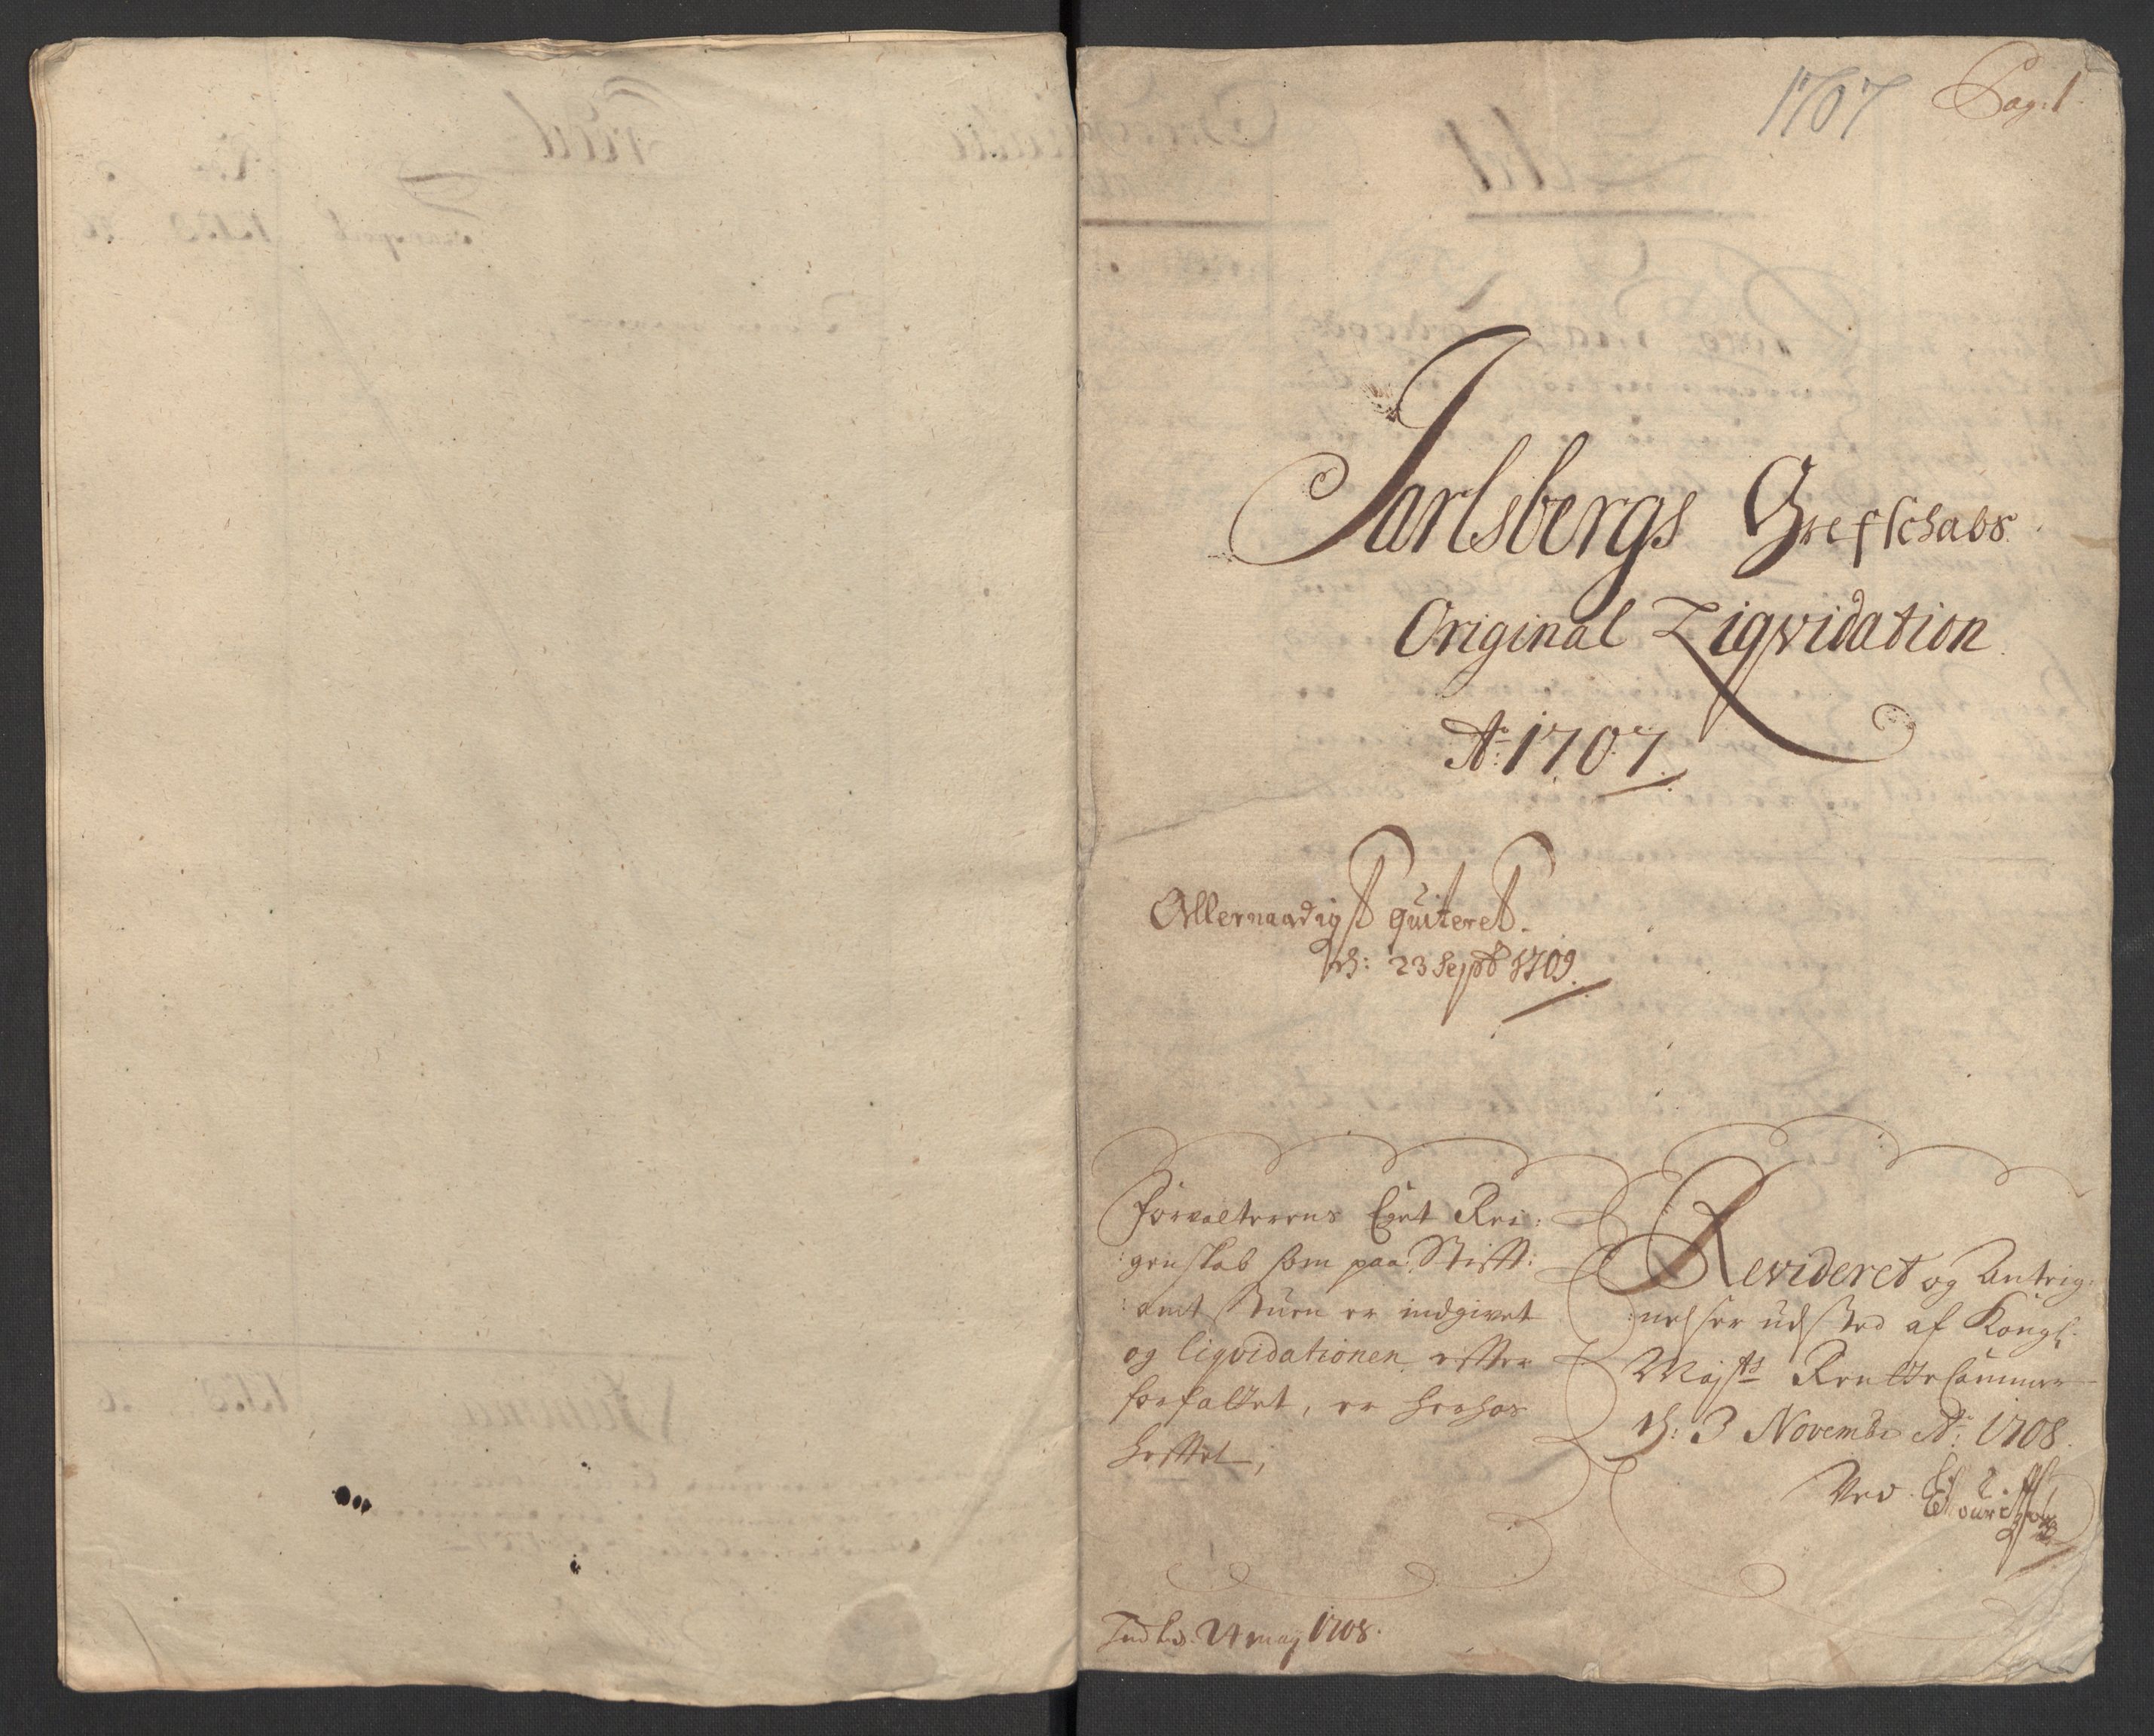 1707 Pag: 1
Jarlsbergs Grefschabs
Original Liqvidation
Ao: 1707.
Allernaadigst quiteret.
d: 23 Septb 1709.
Forvalterens Eget Rei:
:genskab som paa Stifft:
:amt stuen er indgivet
og liqvidationen efter
forfattet, er herhos
hefftet,
Revideret og Anteig:
:nelser udsted af Kongl:
Mayts Rentte Cammer
d: 3 Novembr Ao: 1708.
Ved
Indlev. 24 may 1708.